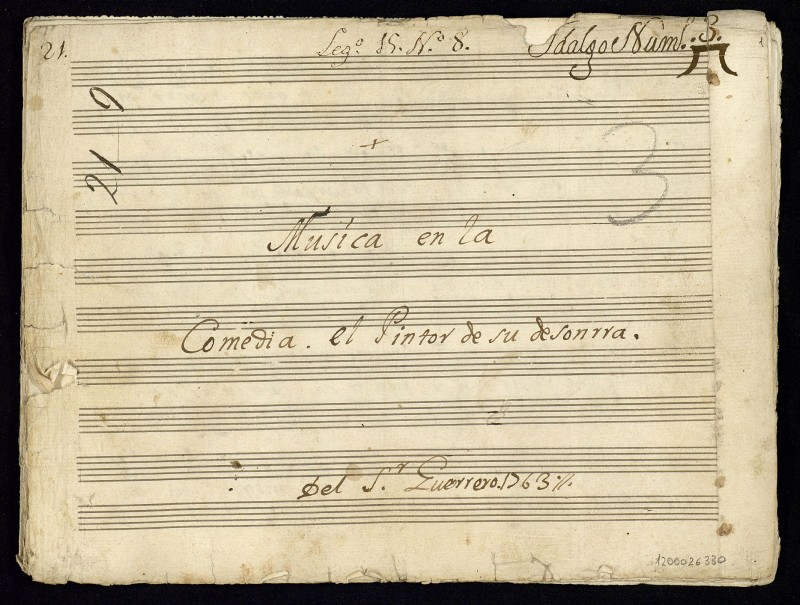 21. Legº. 15. Nº 8. Idalgo Numº. 3.
21 9
3
Musica en la
Comedia. el Pintor de su desonrra.
Del Sr. Guerrero. 1763.
1200026330